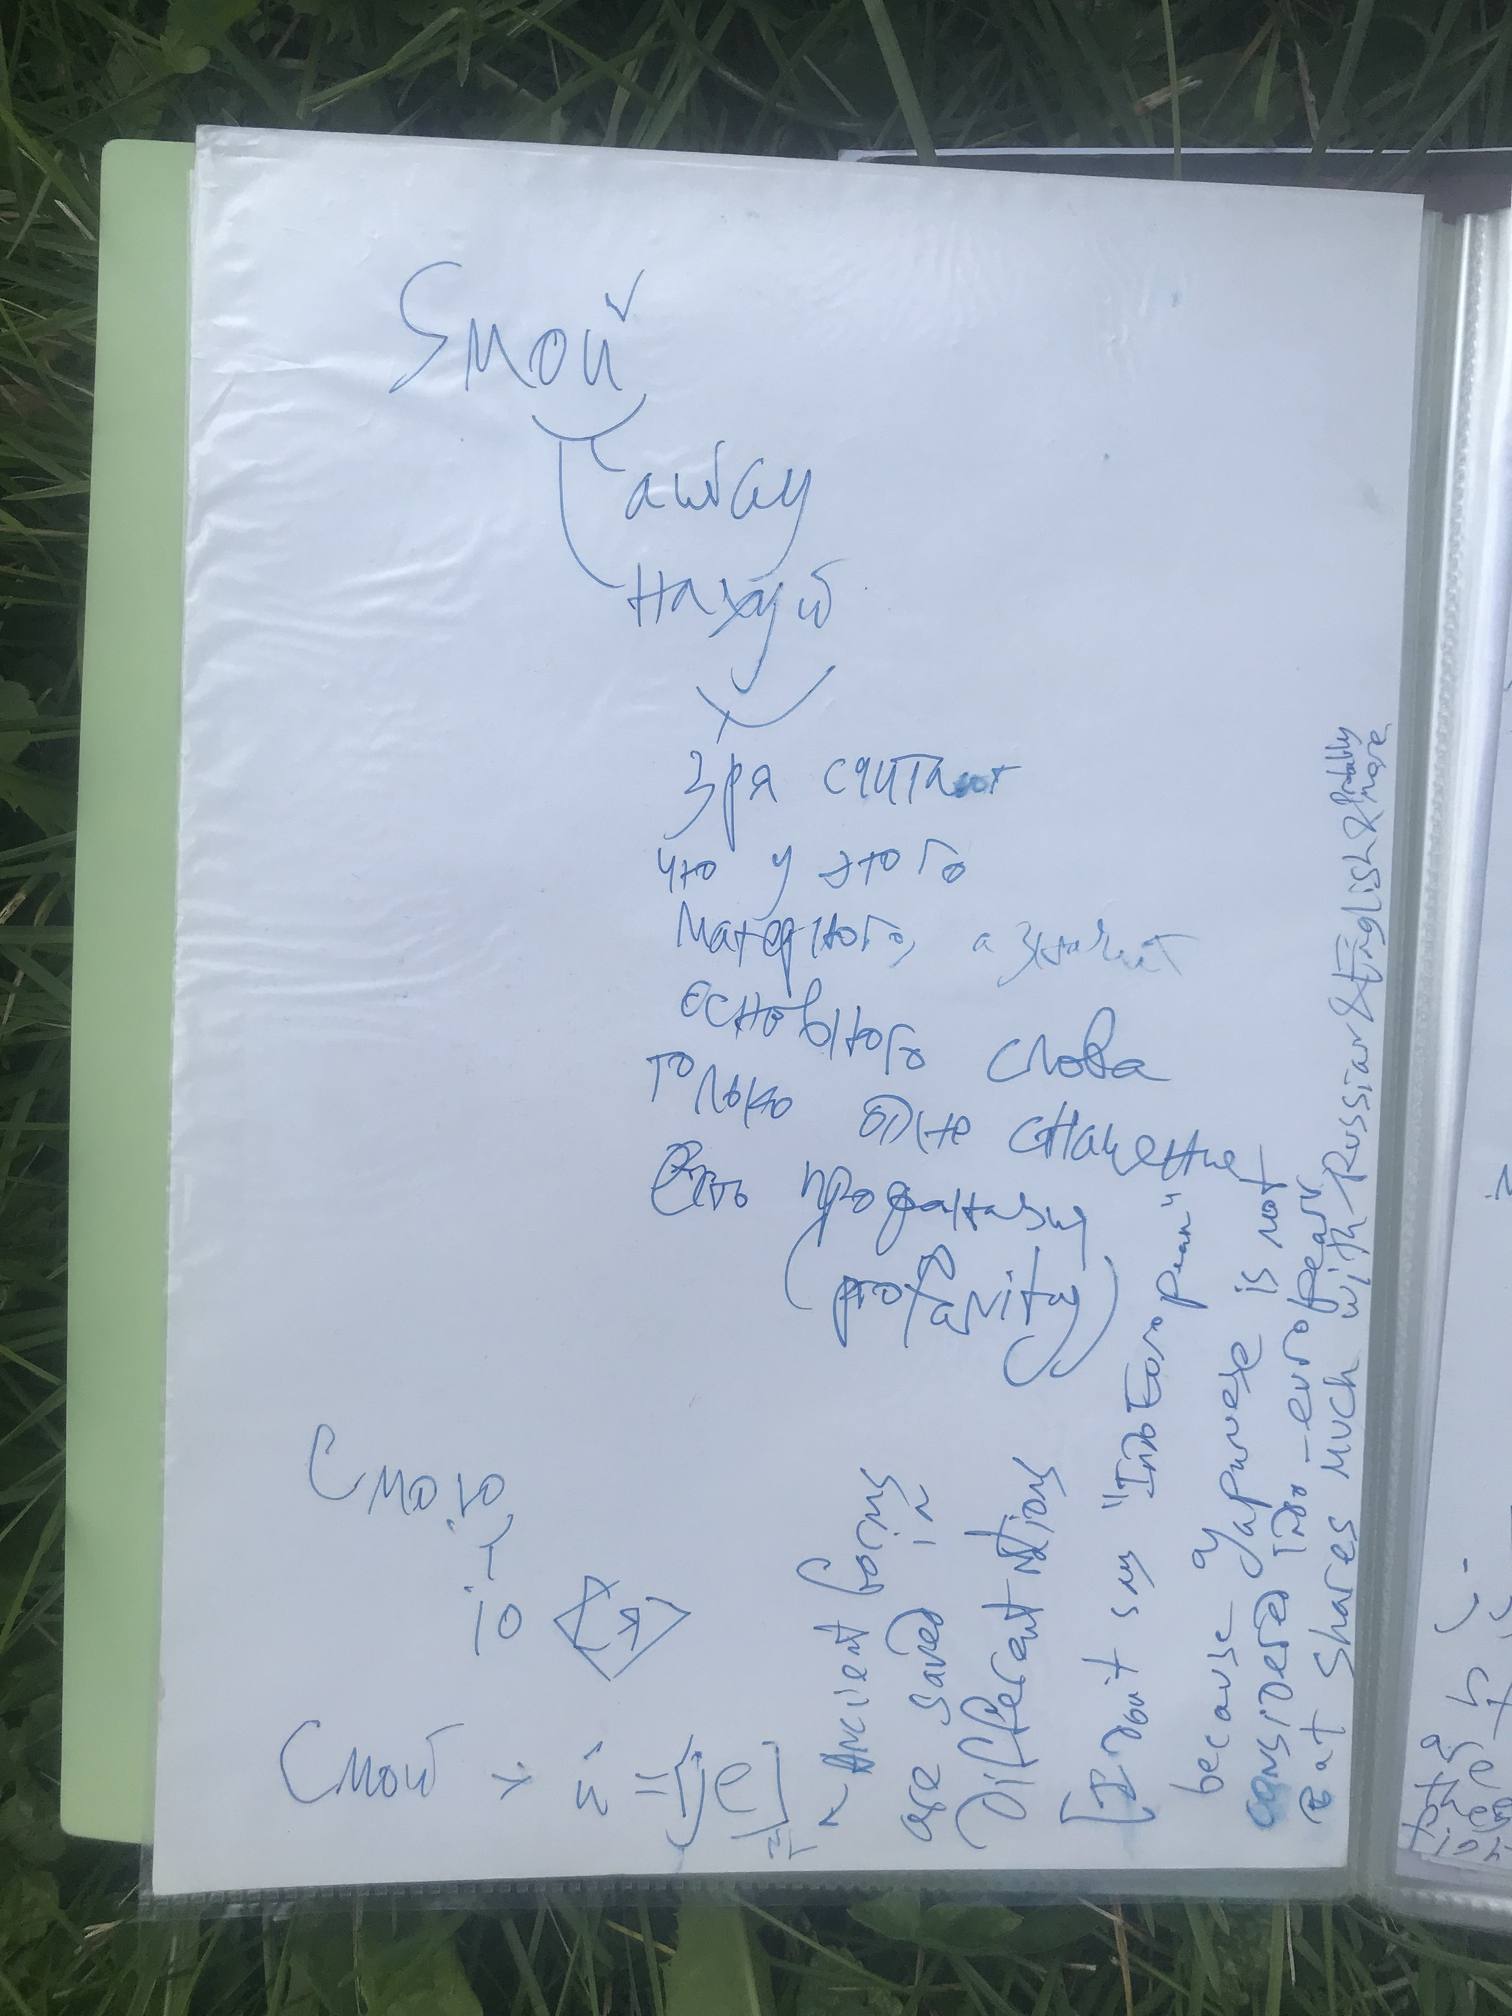 Sмой
away
нахуй
Зря считают
что у этого
матерного, а значит
основного слова
только одне сначение
Есть профанаци
(profanity)
Смою
ю
я
Смой
й = [је]
~ Ancient forms
are saved in
Different nations
[I Don't say "IndoEuropean"
because Japanese is not
considered Indo-european
But shares much with Russian & English & Probably more